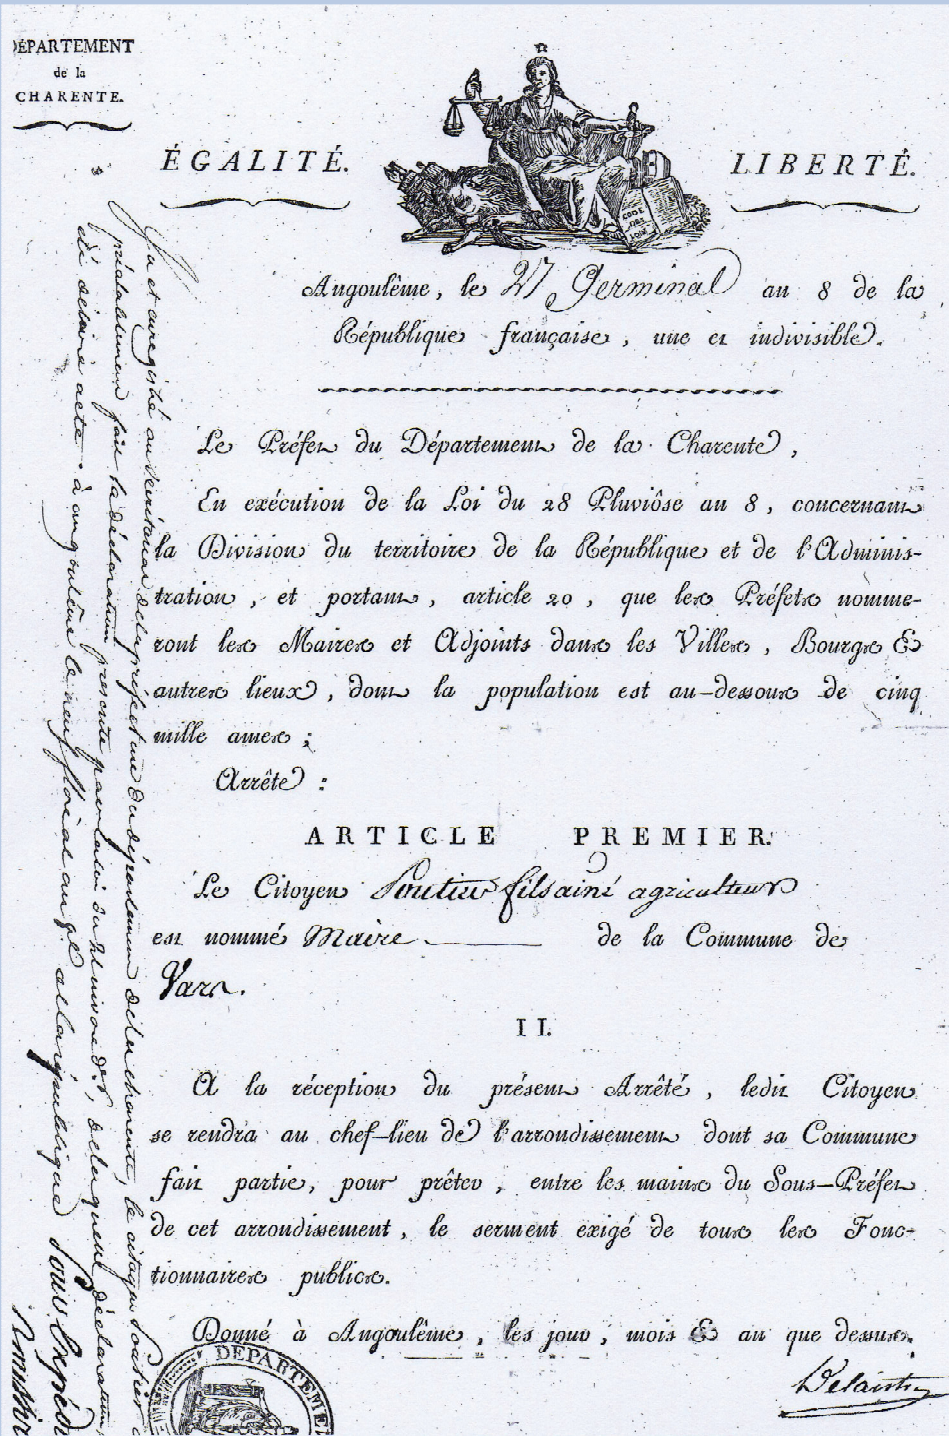 DÉPARTEMENT
de la
CHARENTE.
ÉGALITÉ.
LIBERTÉ.
CODE
DES
LOIX
Angoulême, le 27 Germinal an 8 de la
République française, une et indivisible.
Le Préfet du Département de la Charente,
En exécution de la Loi du 28 Pluviôse an 8, concernant
la Division du territoire de la République et de l'Adminis-
tration, et portant, article 20, que les Préfets nomme-
ront les Maires et Adjoints dans les Villes, Bourgs &
autres lieux, dont la population est au-dessous de cinq
mille ames;
Arrête:
ARTICLE PREMIER.
Le Citoyen fils ainé agriculteur
est nommé Maire de la Commune de
Vars.
II.
A la réception du présent Arrêté, ledit Citoyen
se rendra au chef-lieu de l'arrondissement dont sa Commune
fait partie, pour prêter, entre les mains du Sous-Préfet
de cet arrondissement, le serment exigé de tous les Fonc-
tionnaires publics.
Donné à Angoulême, les jour, mois & an que dessus.
DEPARTEMEN
enregistré au secrétariat de la préfecture du département de la charente, le citoyen
préalablement fait la déclaration prescrite par la loi du 21 nivose de laquelle déclaration
acte. à angoulême le neuf floréal an 8e de la république